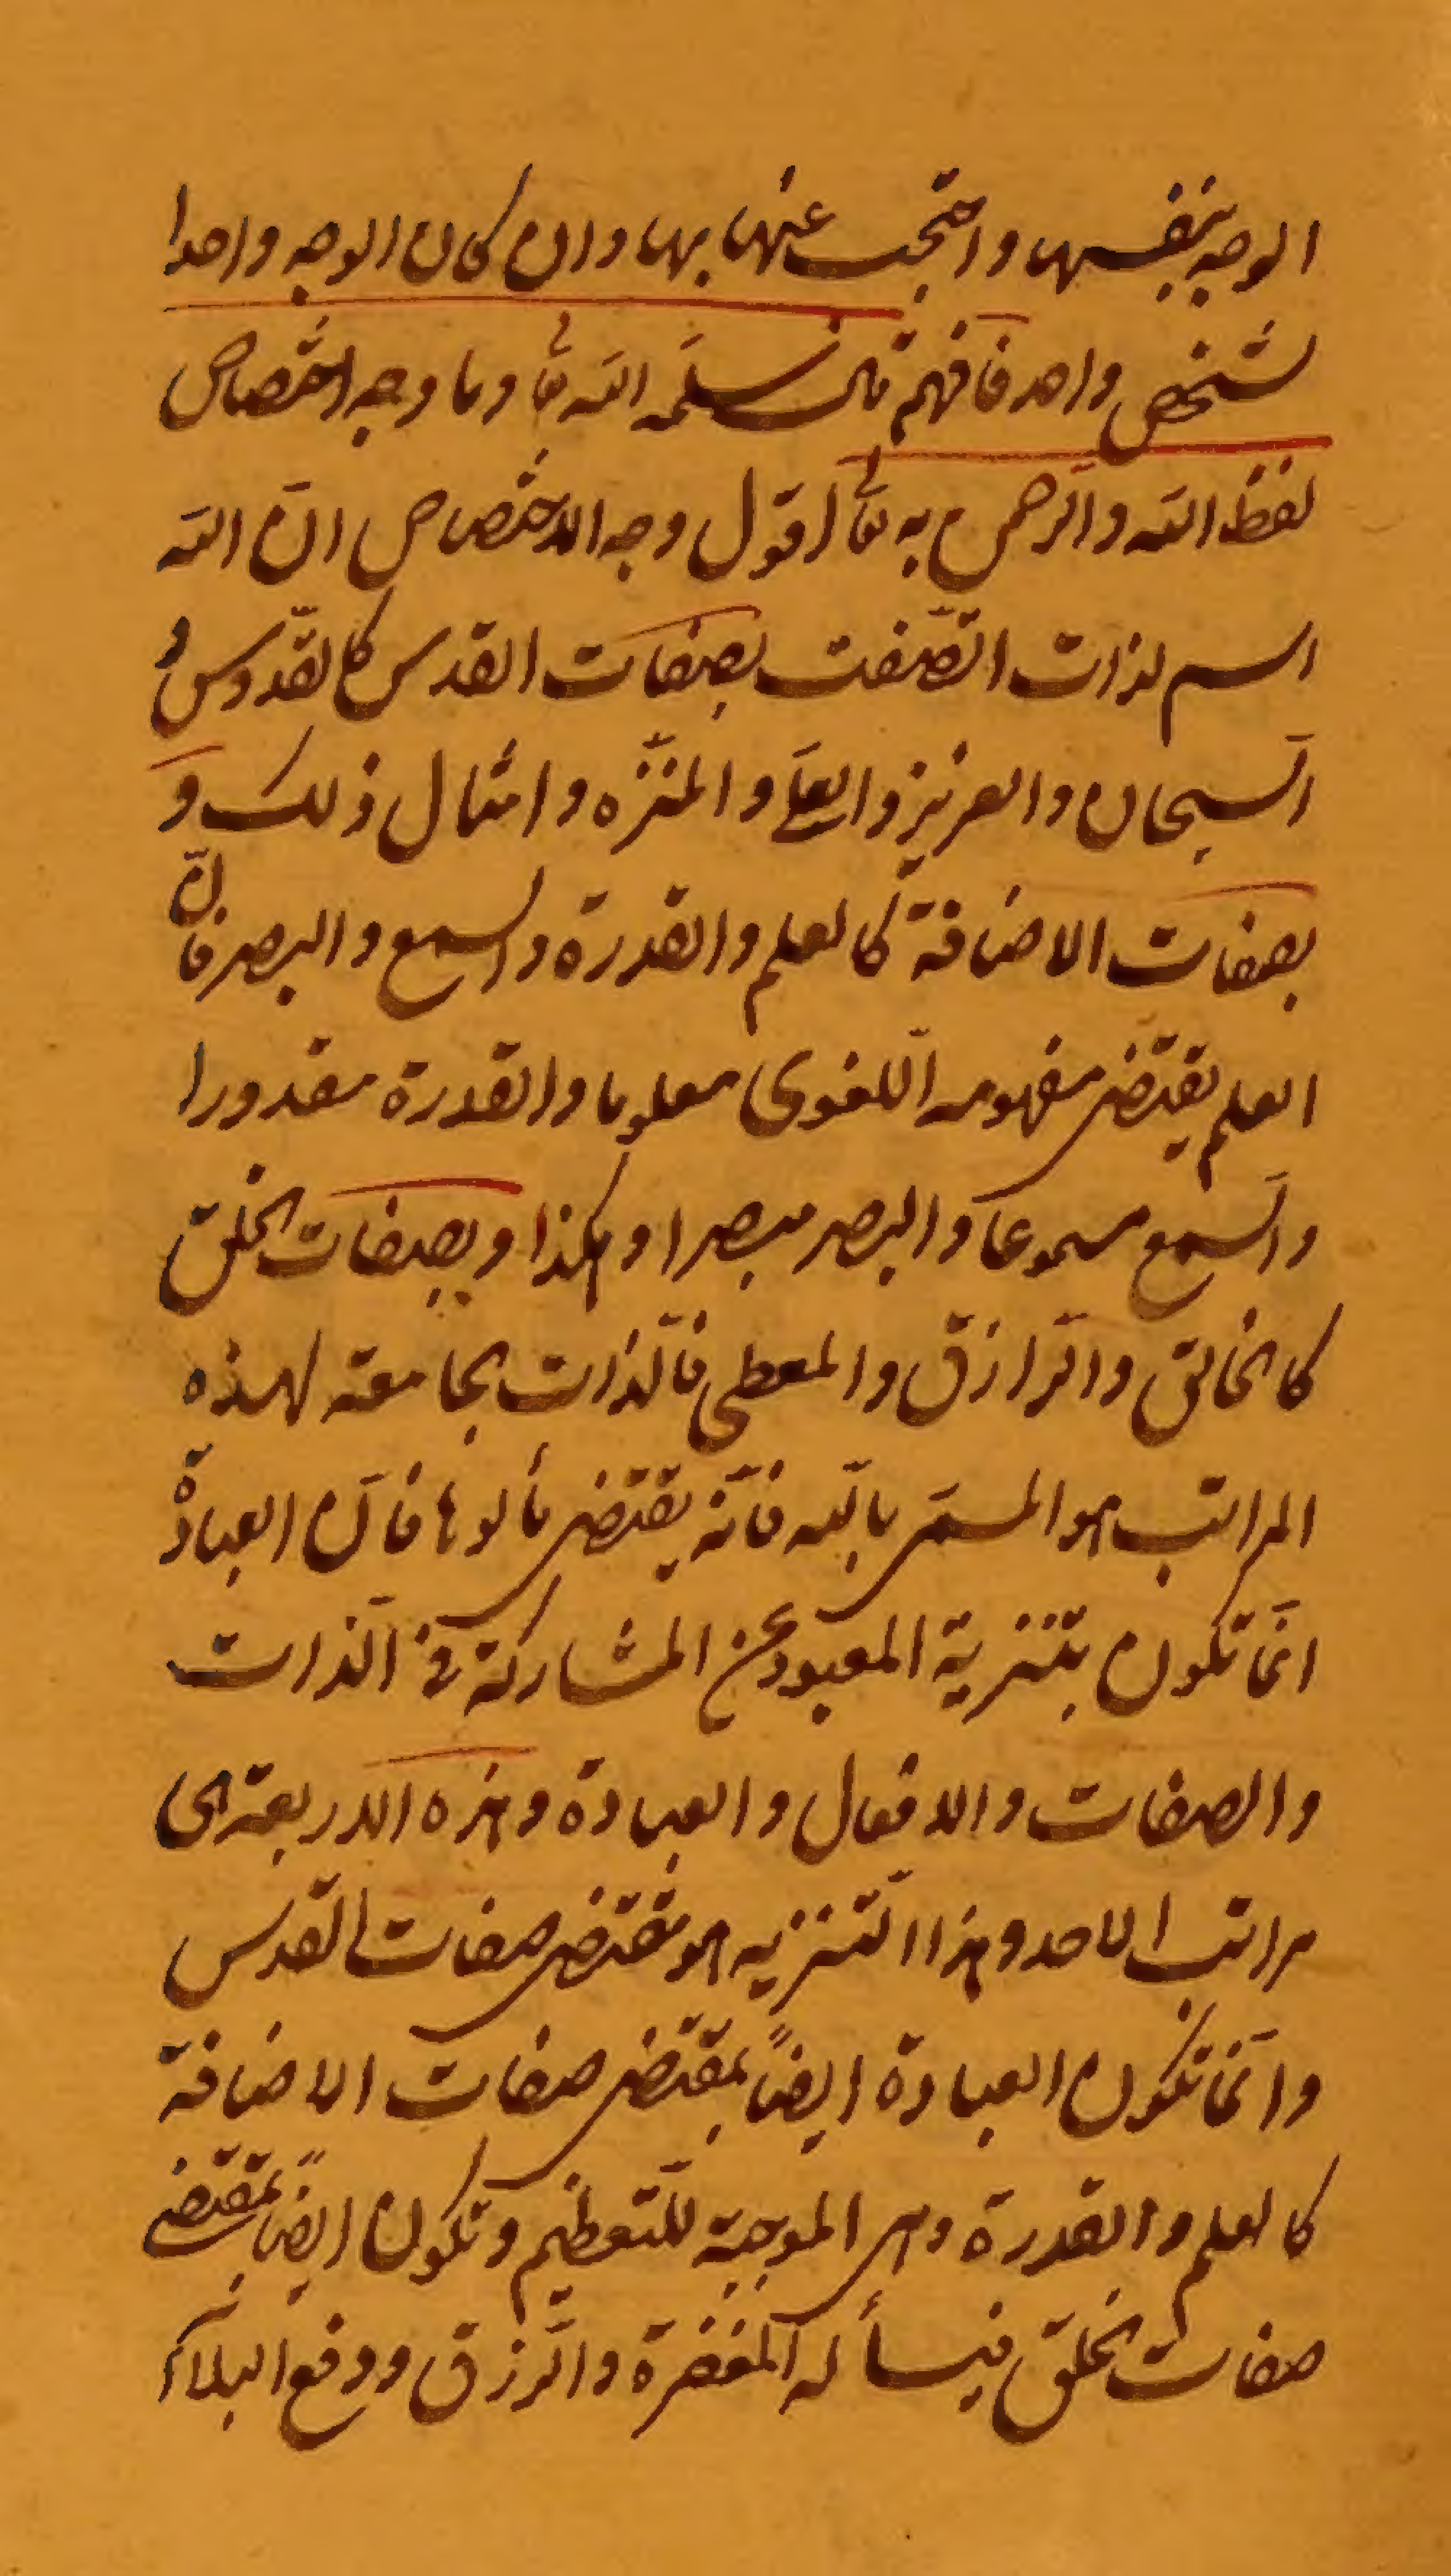 الوجه بنفسها واحتجب عنها بها وان كان الوجه واحدا
لشخص واحد فافهم قال سلمه الله تعا وما وجه اختصاص
لفظ الله والرّحمن به تعا اقول وجه الاختصاص انّ الله
اسم لذات اتّصفت بصفات القدس كالقدّوس و
السّبحان والعزيز والعلىّ والمنزّه وامثال ذلك و
بصفات الاضافة كالعلم والقدرة والسمع والبصر فانّ
العلم يقتضى مفهومه اللّغوى معلوما والقدرة مقدورا
والسّمع مسموعا والبصر مبصرا وهكذا وبصفات الخلق
كالخالق والرّازق والمعطى فالّذات الجامعة لهذه
المراتب هو المسمّى بالله فانّه يقتضى مألوها فانّ العبادة
انّما تكون بتنزيه المعبود عن المشاركة فى الّذات
والصفات والافعال والعبادة وهذه الاربعة هى
مراتب الاحد وهذا التّنزيه هو مقتضى صفات القدس
وانّما تكون العبادة ايضاً بمقتضى صفات الاضافة
كالعلم والقدرة وهى الموجبة للتّعظيم وتكون ايضاً بمقتضى
صفات الخلق فيسأله المغفرة والرّزق ودفع البلاء